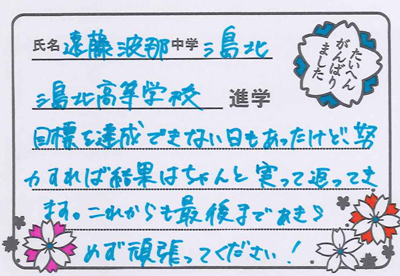 氏名 遠藤波那 中学 三島北
三島北高等学校 進学
たいへん
がんばり
ました
目標を達成できない日もあったけど、努
力すれば結果はちゃんと実って返ってき
ます。これからも最後まであきら
めず頑張ってください!